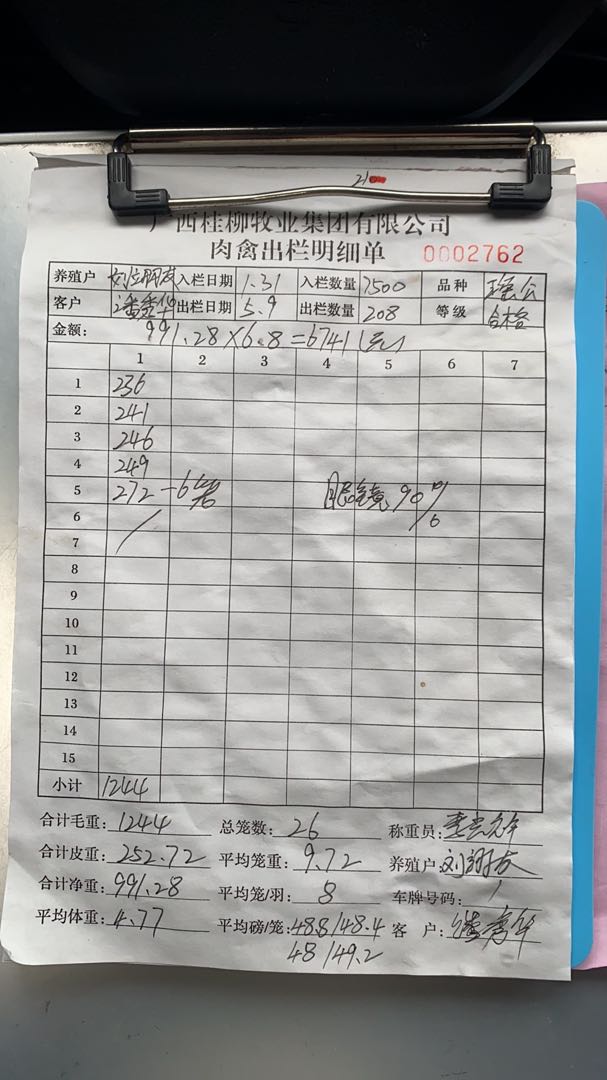 21
广西桂柳牧业集团有限公司
肉禽出栏明细单 0002762
养殖户 入栏日期 1.31 入栏数量 7500 品种
客户 出栏日期 5.9 出栏数量 208 等级 合格
金额: 991.28×6.8=6741(元)
1 2 3 4 5 6 7
1 236
2 241
3 246
4 249
5 272-6笼 眼镜90%
6 6
7
8
9
10
11
12
13
14
15
小计 1244
合计毛重: 1244 总笼数: 26 称重员:
合计皮重: 252.72 平均笼重: 9.72 养殖户:
合计净重: 991.28 平均笼/羽: 8 车牌号码: /
平均体重: 4.77 平均磅/笼: 48.8/48.4 客 户:
48/49.2